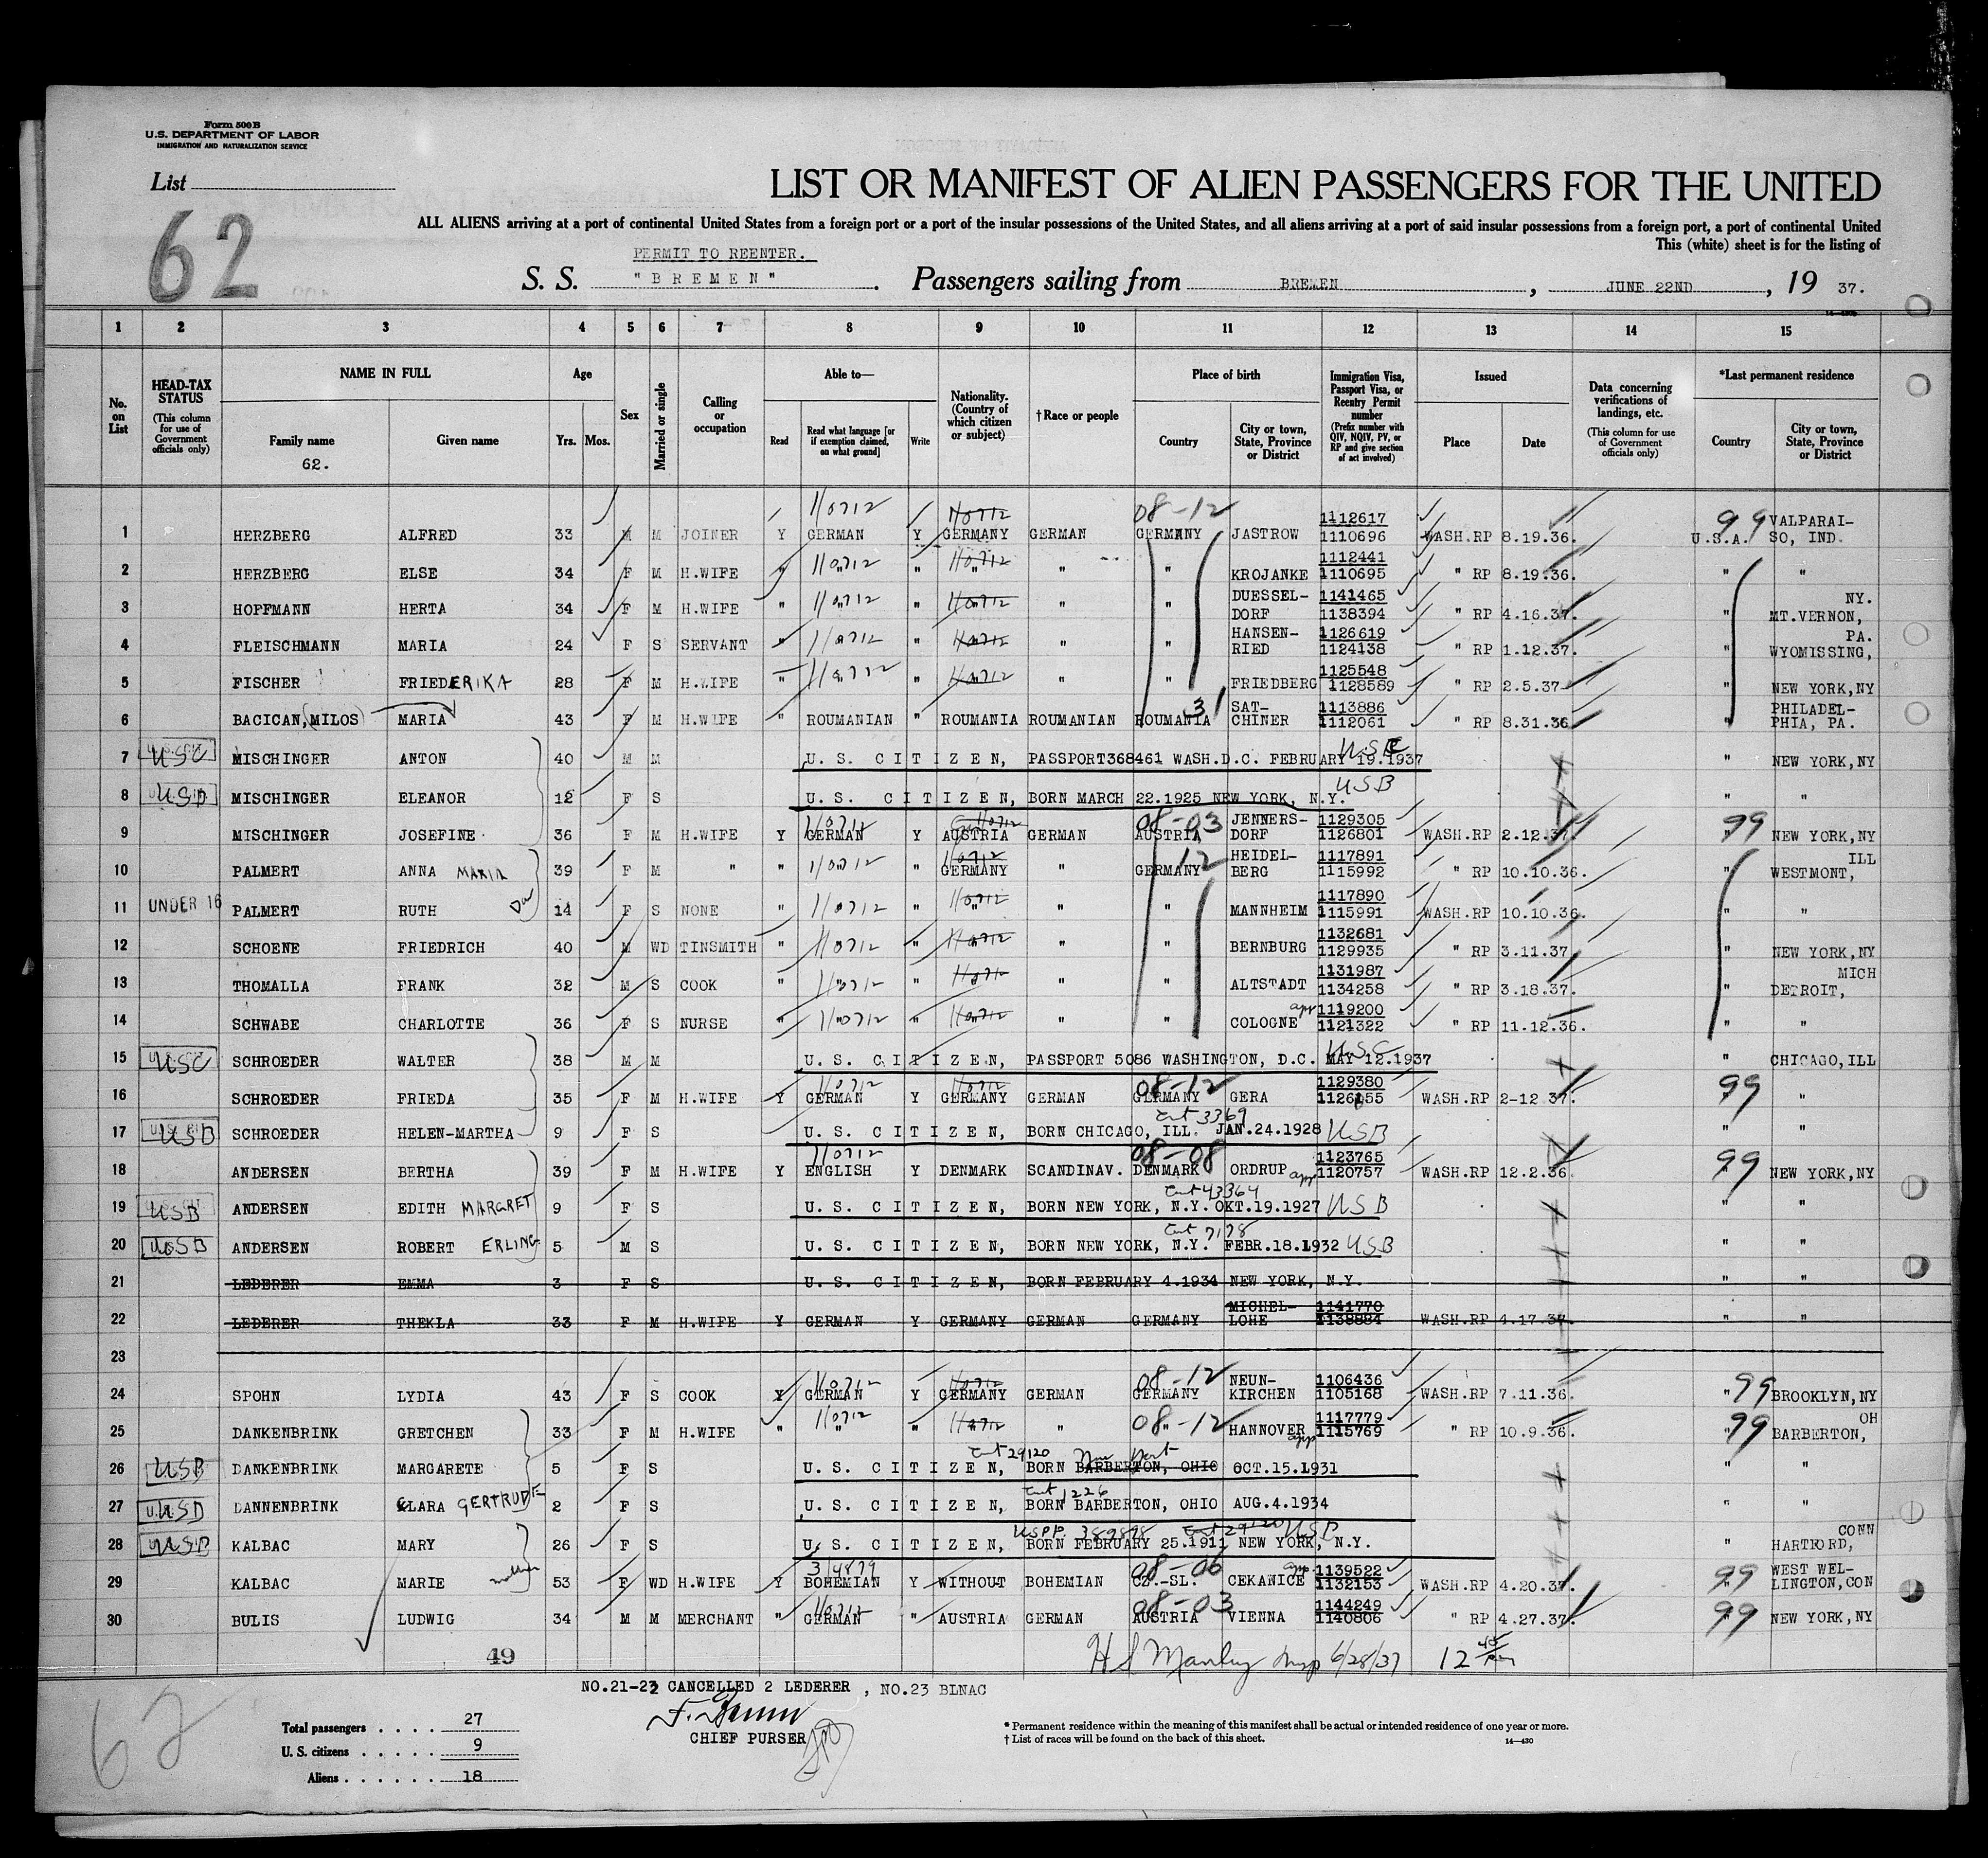 Form 500 B
U.S. DEPARTMENT OF LABOR
IMMIGRATION AND NATURALIZATION SERVICE
List
62
LIST OR MANIFEST OF ALIEN PASSENGERS FOR THE UNITED
ALL ALIENS arriving at a port of continental United States from a foreign port or a port of the insular possessions of the United States, and all aliens arriving at a port of said insular possessions from a foreign port, a port of continental United
This (white) sheet is for the listing of
PERMIT TO REENTER.
S. S. "BREMEN". Passengers sailing from BREMEN, JUNE 22ND, 19 37.
1 2 3 4 5 6 7 8 9 10 11 12 13 14 15
No. on List
HEAD-TAX STATUS (This column for use of Government officials only)
NAME IN FULL
Family name Given name
62.
Age
Yrs. Mos.
Sex
Married or single
Calling or occupation
Able to—
Read
Read what language [or if exemption claimed, on what ground]
Write
Nationality. (Country of which citizen or subject)
†Race or people
Place of birth
Country
City or town, State, Province or District
Immigration Visa, Passport Visa, or Reentry Permit number (Prefix number with QIV, NQIV, PV, or RP and give section of act involved)
Issued
Place Date
Data concerning verifications of landings, etc. (This column for use of Government officials only)
*Last permanent residence
Country
City or town, State, Province or District
110712 110712 08-12 1112617 99 VALPARAI-
1 HERZBERG ALFRED 33 M M JOINER Y GERMAN Y GERMANY GERMAN GERMANY JASTROW 1110696 WASH.RP 8.19.36. U.S.A. SO, IND.
110712 110712 1112441
2 HERZBERG ELSE 34 F M H.WIFE " " " " " " KROJANKE 1110695 " RP 8.19.36. " "
110712 110712 DUESSEL- 1141465 NY.
3 HOFFMANN HERTA 34 F M H.WIFE " " " " " " DORF 1138394 " RP 4.16.37. " MT.VERNON,
110712 110712 HANSEN- 1126619 PA.
4 FLEISCHMANN MARIA 24 F S SERVANT " " " " " " RIED 1124138 " RP 1.12.37. " WYOMISSING,
110712 110712 1125548
5 FISCHER FRIEDERIKA 28 F M H.WIFE " " " " " " FRIEDBERG 1128589 " RP 2.5.37. " NEW YORK,NY
31 SAT- 1113886 PHILADEL-
6 BACICAN,(MILOS) MARIA 43 F M H.WIFE " ROUMANIAN " ROUMANIA ROUMANIAN ROUMANIA CHINER 1112061 " RP 8.31.36 " PHIA, PA.
7 USC MISCHINGER ANTON 40 M M U. S. CITIZEN, PASSPORT368461 WASH.D.C. FEBRUARY 19.1937 USC " NEW YORK,NY
8 USB MISCHINGER ELEANOR 12 F S U. S. CITIZEN, BORN MARCH 22.1925 NEW YORK, N.Y. USB " "
110712 110712 08-03 JENNERS- 1129305
9 MISCHINGER JOSEFINE 36 F M H.WIFE Y GERMAN Y AUSTRIA GERMAN AUSTRIA DORF 1126801 WASH.RP 2.12.37. 99 NEW YORK,NY
110712 110712 12 HEIDEL- 1117891 ILL
10 PALMERT ANNA MARIA 39 F M " " " GERMANY " GERMANY BERG 1115992 " RP 10.10.36. " WESTMONT,
110712 110712 1117890
11 UNDER 16 PALMERT RUTH Da 14 F S NONE " " " " " " MANNHEIM 1115991 WASH.RP 10.10.36. " "
110712 110712 1132681
12 SCHOENE FRIEDRICH 40 M WD TINSMITH " " " " " " BERNBURG 1129935 " RP 3.11.37. " NEW YORK,NY
110712 110712 1131987 MICH
13 THOMALLA FRANK 32 M S COOK " " " " " " ALTSTADT 1134258 " RP 3.18.37. " DETROIT,
110712 110712 app 1119200
14 SCHWABE CHARLOTTE 36 F S NURSE " " " " " " COLOGNE 1121322 " RP 11.12.36. " "
15 USC SCHROEDER WALTER 38 M M U. S. CITIZEN, PASSPORT 5086 WASHINGTON, D.C. MAY 12.1937 USC " CHICAGO,ILL
110712 110712 08-12 1129380
16 SCHROEDER FRIEDA 35 F M H.WIFE Y GERMAN Y GERMANY GERMAN GERMANY GERA 1126155 WASH.RP 2-12 37. 99 "
Cert 3369
17 USB SCHROEDER HELEN-MARTHA 9 F S U. S. CITIZEN, BORN CHICAGO, ILL. JAN.24.1928 USB " "
110712 08-08 1123765
18 ANDERSEN BERTHA 39 F M H.WIFE Y ENGLISH Y DENMARK SCANDINAV. DENMARK ORDRUP app 1120757 WASH.RP 12.2.36. 99 NEW YORK,NY
Cert 43364
19 USB ANDERSEN EDITH MARGRET 9 F S U. S. CITIZEN, BORN NEW YORK, N.Y. OKT.19.1927 USB " "
Cert 7178
20 USB ANDERSEN ROBERT ERLING 5 M S U. S. CITIZEN, BORN NEW YORK, N.Y. FEBR.18.1932 USB " "
21 LEDERER EMMA 3 F S U. S. CITIZEN, BORN FEBRUARY 4.1934 NEW YORK, N.Y. " "
MICHEL- 1141770
22 LEDERER THEKLA 33 F M H.WIFE Y GERMAN Y GERMANY GERMAN GERMANY LOHE 1138884 WASH.RP 4.17.37. " "
23
110712 110712 08-12 NEUN- 1106436
24 SPOHN LYDIA 43 F S COOK Y GERMAN Y GERMANY GERMAN GERMANY KIRCHEN 1105168 WASH.RP 7.11.36. " 99 BROOKLYN,NY
110712 110712 08-12 1117779 OH
25 DANKENBRINK GRETCHEN 33 F M H.WIFE " " " " " HANNOVER app 1115769 " RP 10.9.36. " 99 BARBERTON,
Cert 29120 New York
26 USB DANKENBRINK MARGARETE 5 F S U. S. CITIZEN, BORN BARBERTON, OHIO OCT.15.1931 " "
Cert 1226
27 USB DANNENBRINK CLARA GERTRUDE 2 F S U. S. CITIZEN, BORN BARBERTON, OHIO AUG.4.1934 " "
USPP. 389898 Cert 29120 USB CONN
28 USB KALBAC MARY 26 F S U. S. CITIZEN, BORN FEBRUARY 25.1911 NEW YORK, N.Y. " HARTFORD,
314879 08-06 app 1139522 WEST WEL-
29 KALBAC MARIE mother 53 F WD H.WIFE Y BOHEMIAN Y WITHOUT BOHEMIAN CZ.-SL. CEKANICE 1132153 WASH.RP 4.20.37. 99 LINGTON,CON
110712 08-03 1144249
30 BULIS LUDWIG 34 M M MERCHANT " GERMAN " AUSTRIA GERMAN AUSTRIA VIENNA 1140806 " RP 4.27.37. 99 NEW YORK,NY
49 H S Manley Insp 6/28/37 12 45 pm
NO.21-22 CANCELLED 2 LEDERER , NO.23 BLNAC
CHIEF PURSER
62
Total passengers . . . . 27
U. S. citizens . . . . . 9
Aliens . . . . . . 18
* Permanent residence within the meaning of this manifest shall be actual or intended residence of one year or more.
† List of races will be found on the back of this sheet. 14—430